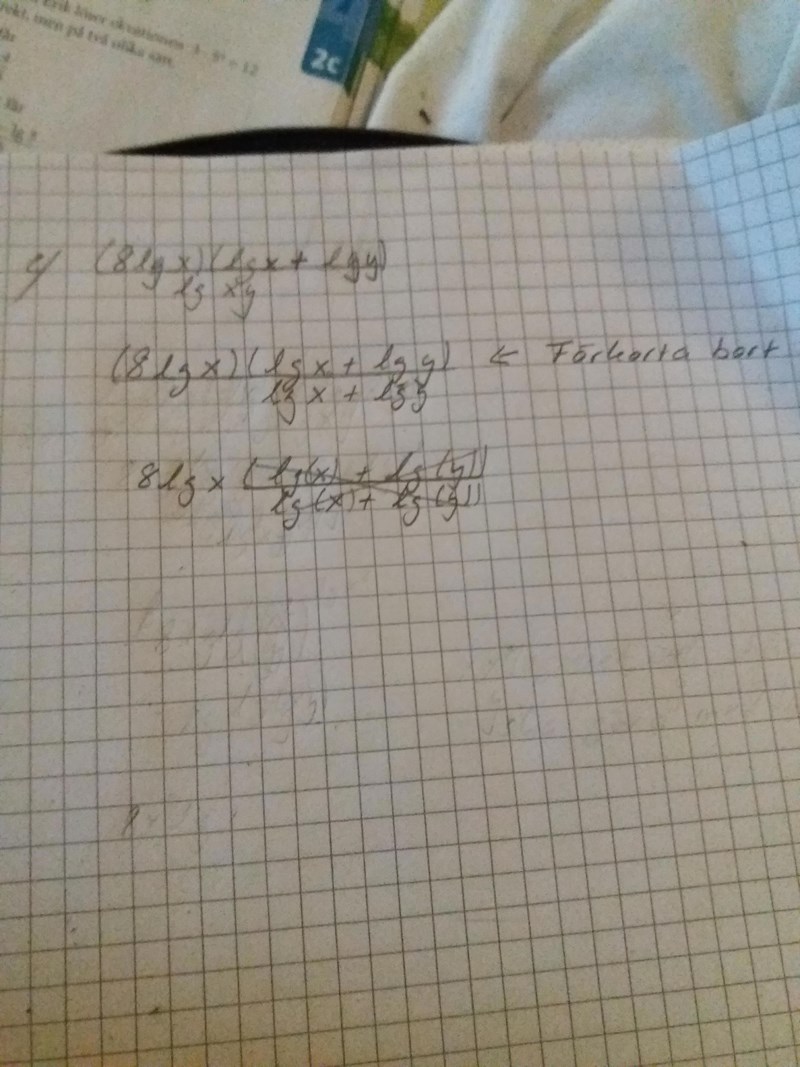 Erik löser ekvationen 3 · 5ˣ = 12
men på två olika sätt.
2c
c) (8 lg x)(lg x + lg y)
lg xy
(8 lg x)(lg x + lg y) ← Förkorta bort
lg x + lg y
8 lg x (lg(x) + lg(y))
lg(x) + lg(y))